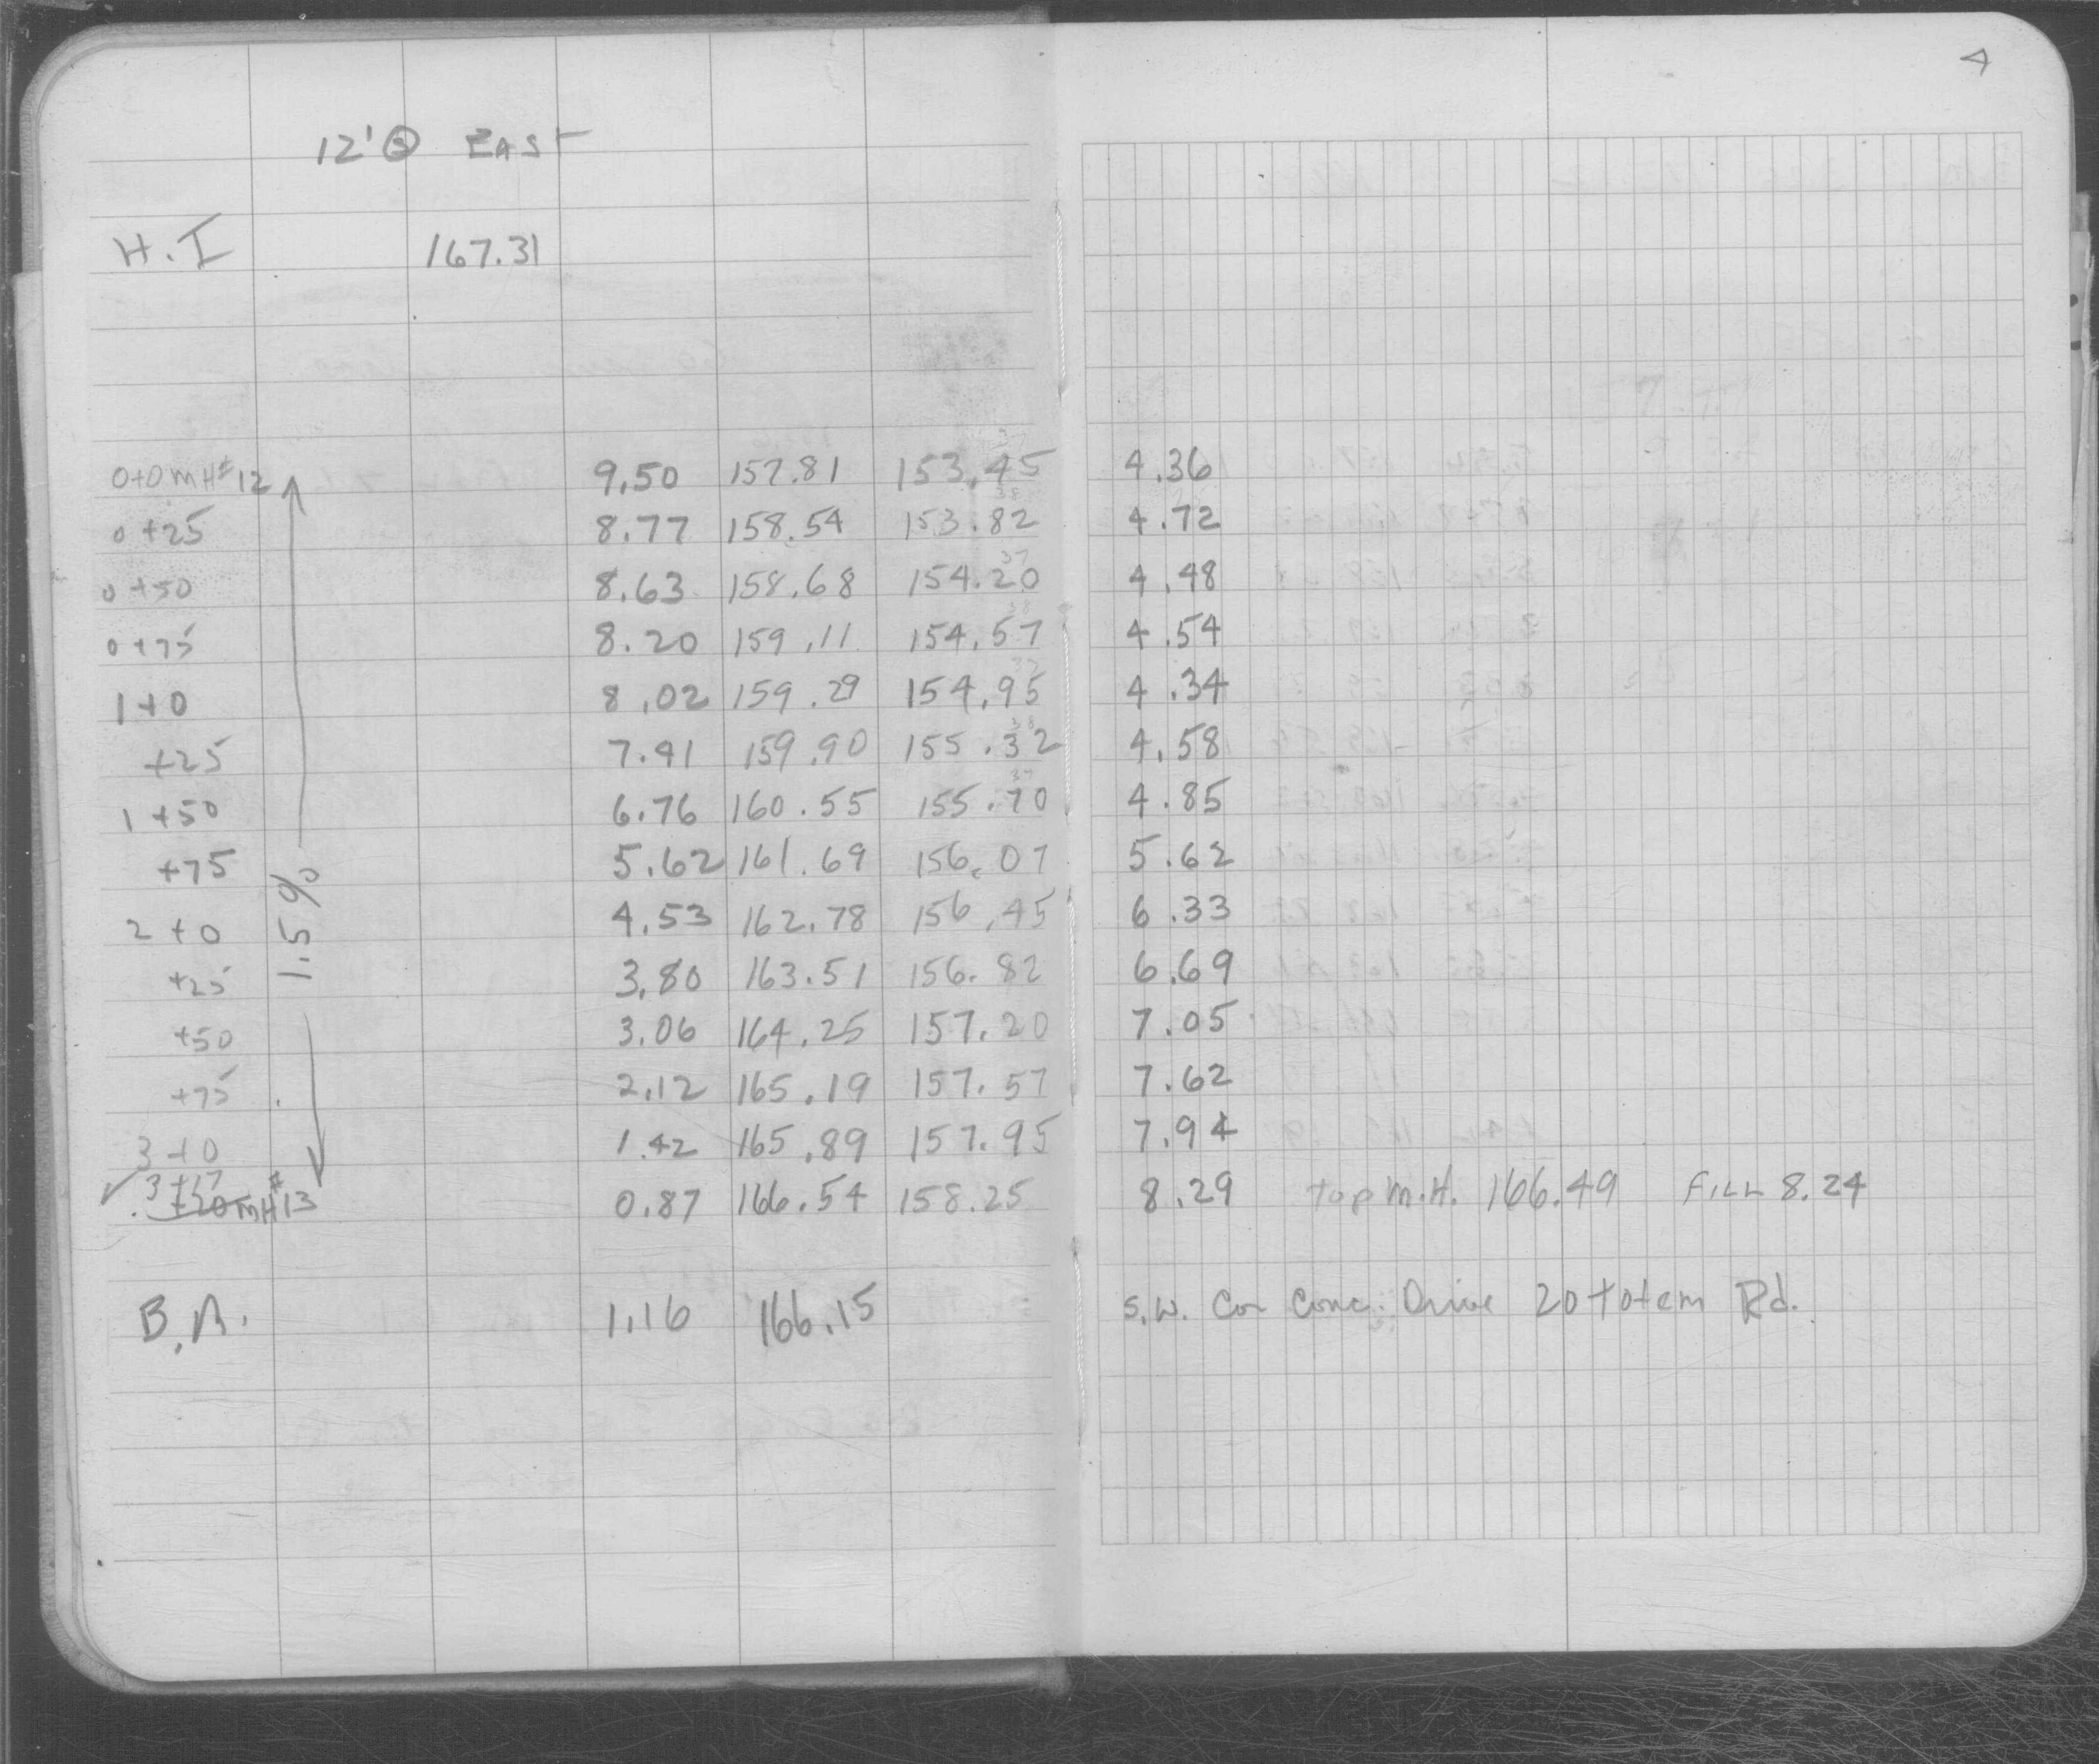 4
12' @ EAST
H.I 167.31
0+0 MH#12 9.50 157.81 153.45 4.36
0+25 8.77 158.54 153.82 4.72
0+50 8.63 158.68 154.20 4.48
0+75 8.20 159.11 154.57 4.54
1+0 8.02 159.29 154.95 4.34
+25 7.41 159.90 155.32 4.58
1+50 6.76 160.55 155.70 4.85
+75 5.62 161.69 156.07 5.62
1.5%
2+0 4.53 162.78 156.45 6.33
+25 3.80 163.51 156.82 6.69
+50 3.06 164.25 157.20 7.05
+75 2.12 165.19 157.57 7.62
3+0 1.42 165.89 157.95 7.94
3+17
+20 MH#13 0.87 166.54 158.25 8.29 top M.H. 166.49 FILL 8.24
B.M. 1.16 166.15 S.W. Cor Conc. Drive 20 Totem Rd.